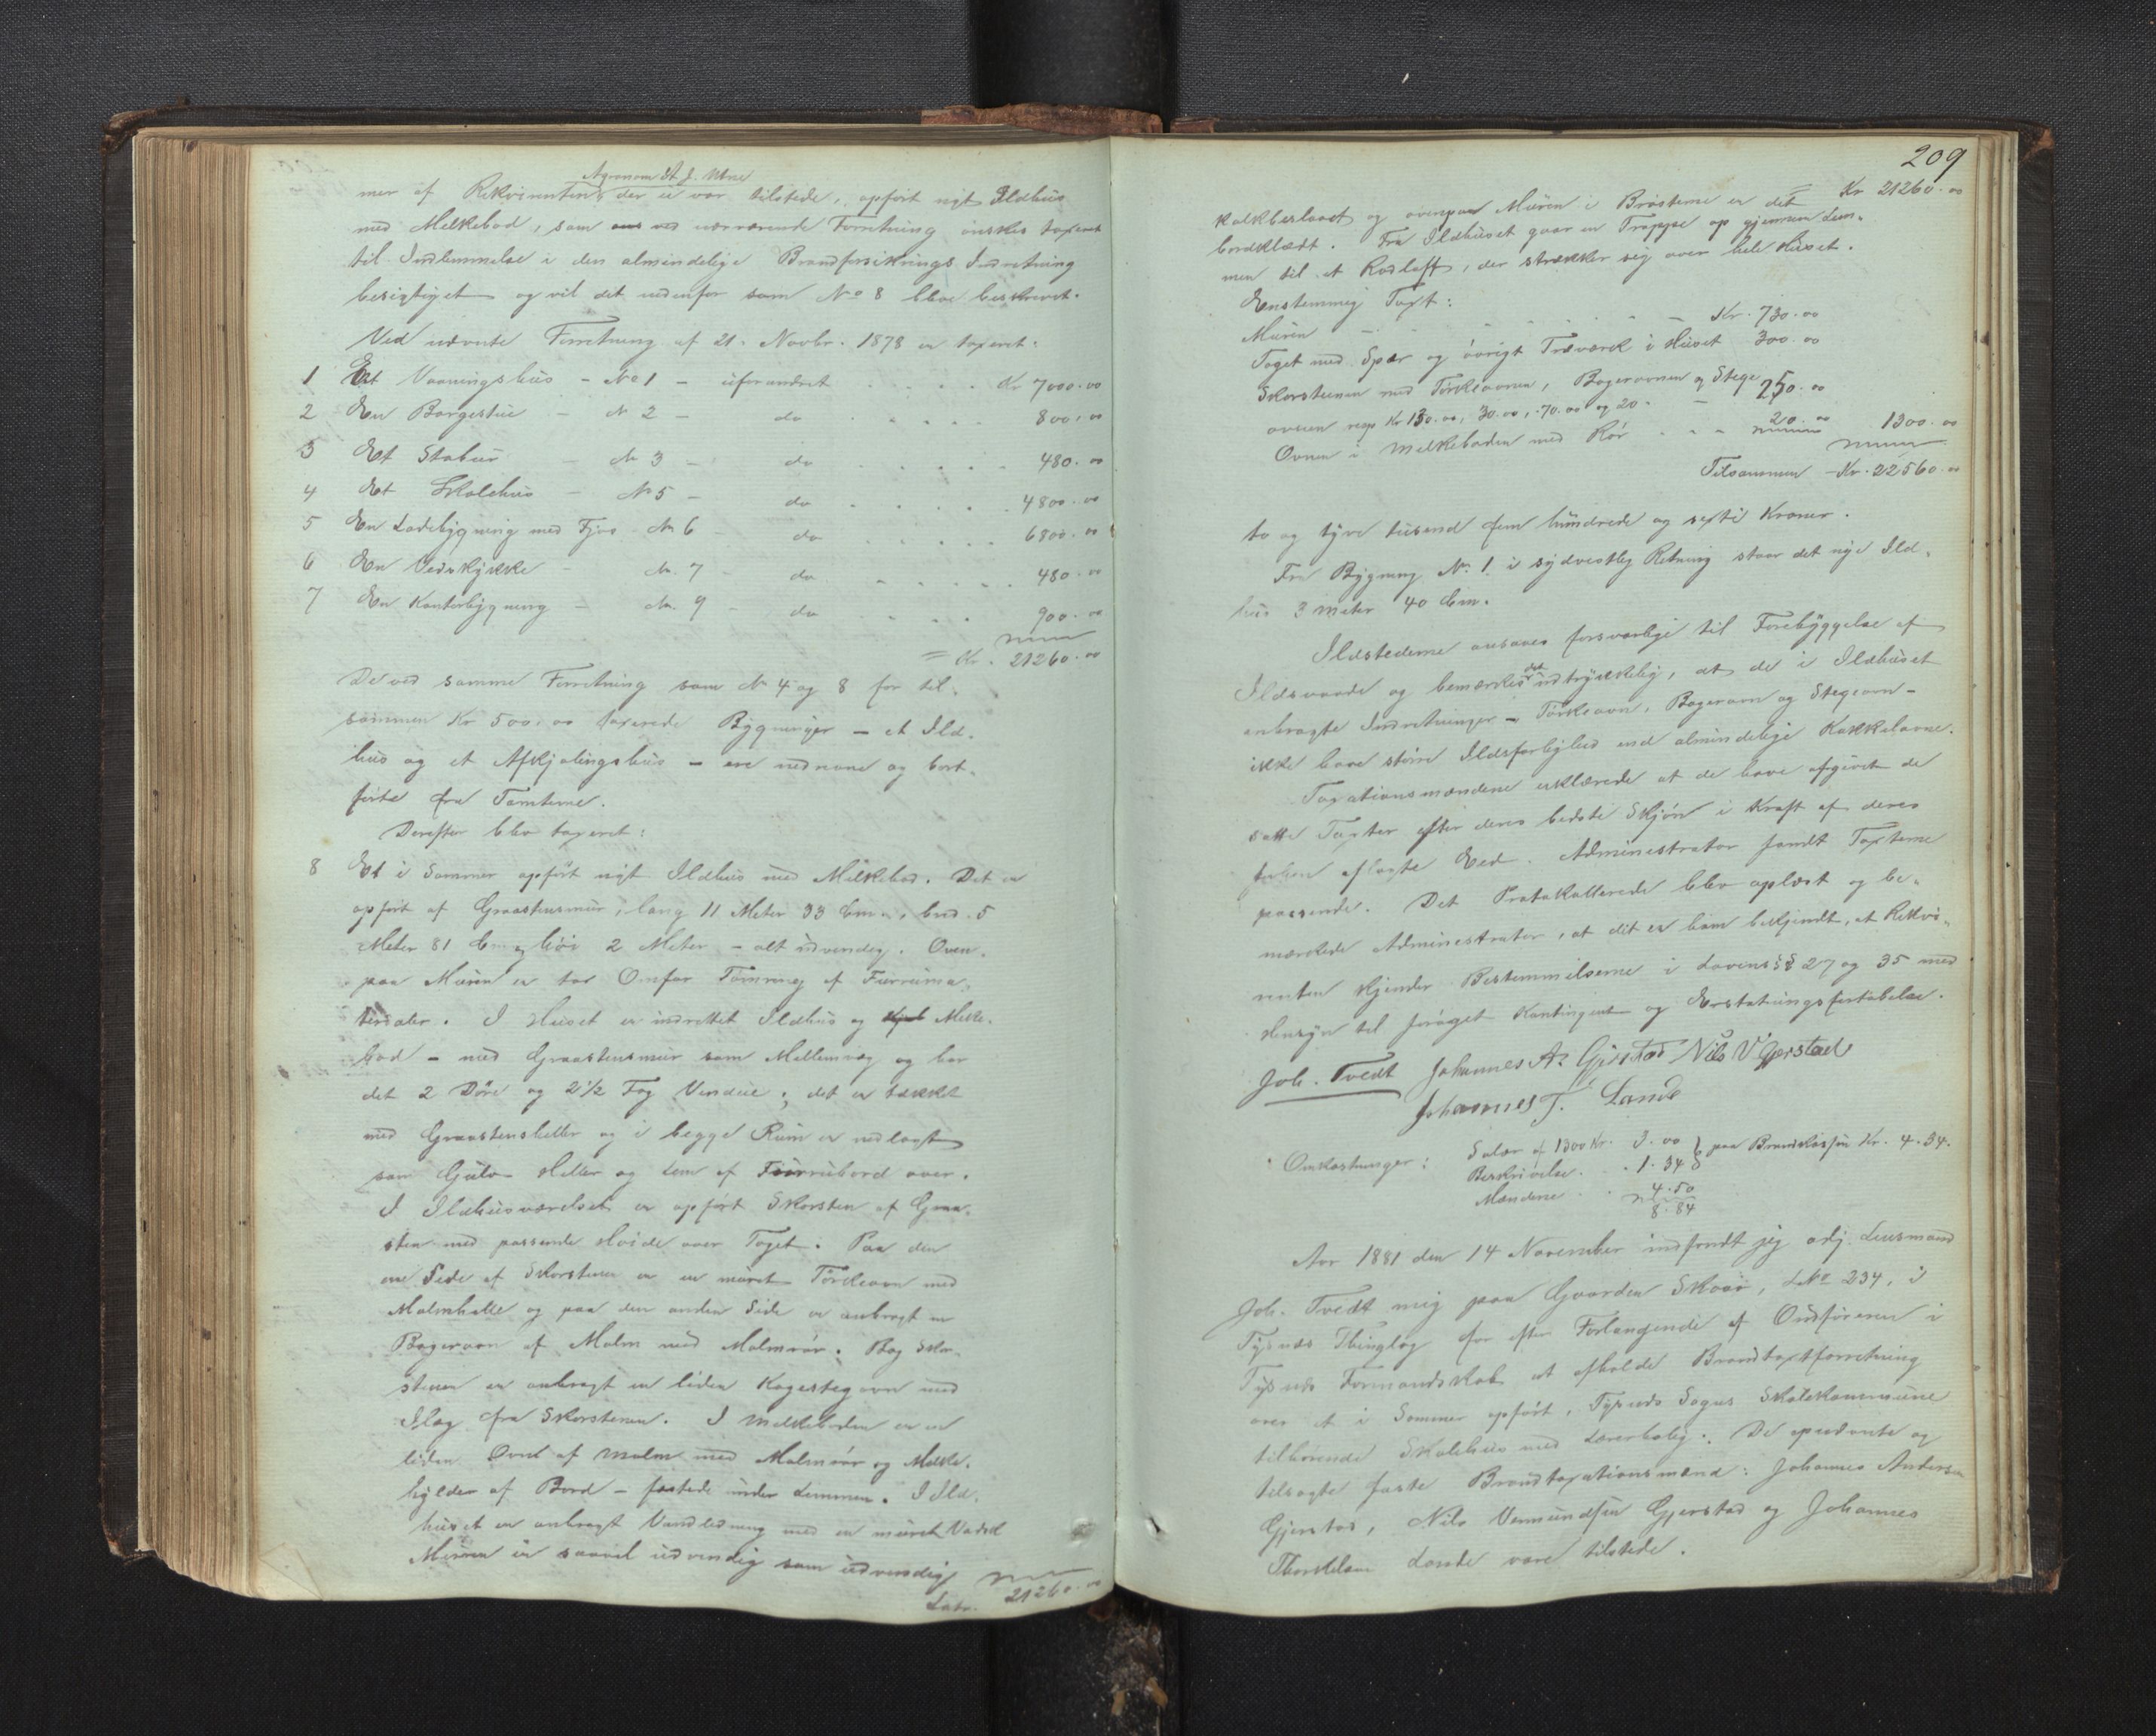 Agronom
mer af Rekvirenten, der ei var tilstede, opført nyt Ildhus
med Melkebod, som ved nærværende Forretning ønskes taxeret
til Indlemmelse i den almindelige Brandforsikrings Indretning
besigtiget og vil det nedenfor som No 8 blive beskrevet.
Ved nævnte Forretning af 21. Novbr. 1878 er taxeret:
1 Et Vaaningshus - No 1 - uforandret . . . . Kr 7000.00
2 En Borgestue - N 2 - do . . . . 800.00
3 Et Stabur - N 3 - do . . . . 480.00
4 Et Skolehus - N 5 - do . . . . 4800.00
5 En Ladebygning med Fjøs - N 6 - do . . . . 6800.00
6 En Vedskykke - N. 7 - do . . . . 480.00
7 En Kontorbygning - N. 9 - do . . . . 900.00
= Kr. 21260.00
De ved samme Forretning som N 4 og 8 for til-
sammen Kr 500.00 taxerede Bygninger - et Ild-
hus og et Afkjølingshus - ere nedrevne og bort-
førte fra Tomterne.
Derefter blev taxeret:
8 Et i Sommer opført nyt Ildhus med Melkebod. Det er
opført af Graastensmur, lang 11 Meter 33 Cm., bred 5
Meter 81 Cm, høi 2 Meter - alt udvendig. Oven-
paa Muren er to Omfar Tømring af Furruma-
terialer. I Huset er indrettet Ildhus og Melke-
bod - med Graastensmur som Mellemvæg og har
det 2 Døre og 2 1/2 Fag Vindue; det er tækket
med Graastensheller og i begge Rum er nedlagt
som Gulv Heller og Lem af Furrubord over.
I Ildhusværelset er opført Skorsten af Graa-
sten med passende Høide over Taget. Paa den
ene Side af Skorstenen er en muret Tørkeovn med
Malmhelle og paa den anden Side er anbragt en
Bagerovn af Malm med Malmrør. Bag Skor-
stenen er anbragt en liden Kogestegovn med
Ilæg fra Skorstenen. I Melkeboden er en
liden Ovn af Malm med Malmrør og Melke-
hylder af Bord - fæstede under Lemmen. I Ild-
huset er anbragt Vandledning med en muret
Muren er saavel udvendig som indvendig
Lats. 21260.00
209
Kr 21260.00
kalkbeslaaet og ovenpaa Muren i Brøsterne er det
bordklædt. Fra Ildhuset gaar en Trappe op gjennem Lem-
men til et Rodloft, der strækker sig over hele Huset.
Enstemmig Taxt:
Muren - - - - Kr. 730.00
Taget med Spær og øvrigt Træværk i Huset 300.00
Skorstenen med Tørkeovnen, Bagerovnen og Stege
ovnen resp Kr 130.00, 30.00, 70.00 og 20. - 250.00
Ovnen i Melkeboden med Rør . . - 20.00 1300.00
Tilsammen - Kr. 22560.00
to og tyve tusend fem hundrede og sexti Kroner.
Fra Bygning No 1 i sydvestlig Retning staar det nye Ild-
hus 3 Meter 40 Cm.
Ildstederne ansaaes forsvarlige til Forebyggelse af
Ildsvaade og bemærkes det udtrykkelig, at de i Ildhuset
anbragte Indretninger - Tørkeovn, Bagerovn og Stegeovn -
ikke have større Ildsfarlighed end almindelige Kakkelovne.
Taxationsmændene erklærede at de have afgivet de
satte Taxter efter deres bedste Skjøn i Kraft af deres
forhen aflagte Eed. Administrator fandt Taxterne
passende. Det Protokollerede blev oplæst og be-
mærkede Administrator, at det er ham bekjendt, at Rekvi-
renten kjender Bestemmelserne i Lovens §§ 27 og 35 med
Hensyn til forøget Kontingent og Erstatningsfortabelse.
Joh. Tvedt Johannes A. Gjerstad Nils V Gjerstad
Johannes T. Lande
Omkostninger: Salær af 1300 Kr. 3.00 } paa Brandkassen Kr. 4.34.
Beskrivelse . . 1.34
Mændene . . 4.50
8.84
Aar 1881 den 14 November indfandt jeg adj. Lensmand
Joh. Tvedt mig paa Gaarden Skaar, LNo 234, i
Tysnæs Thinglag for efter Forlangende af Ordføreren i
Tysnæs Formandskab at afholde Brandtaxtforretning
over et i Sommer opført, Tysnæs Sogns Skolekommune
tilhørende Skolehus med Lærerbolig. De opnævnte og
tilsagte faste Brandtaxationsmænd: Johannes Andersen
Gjerstad, Nils Vemundsen Gjerstad og Johannes
Thorkelsen Lande vare tilstede.